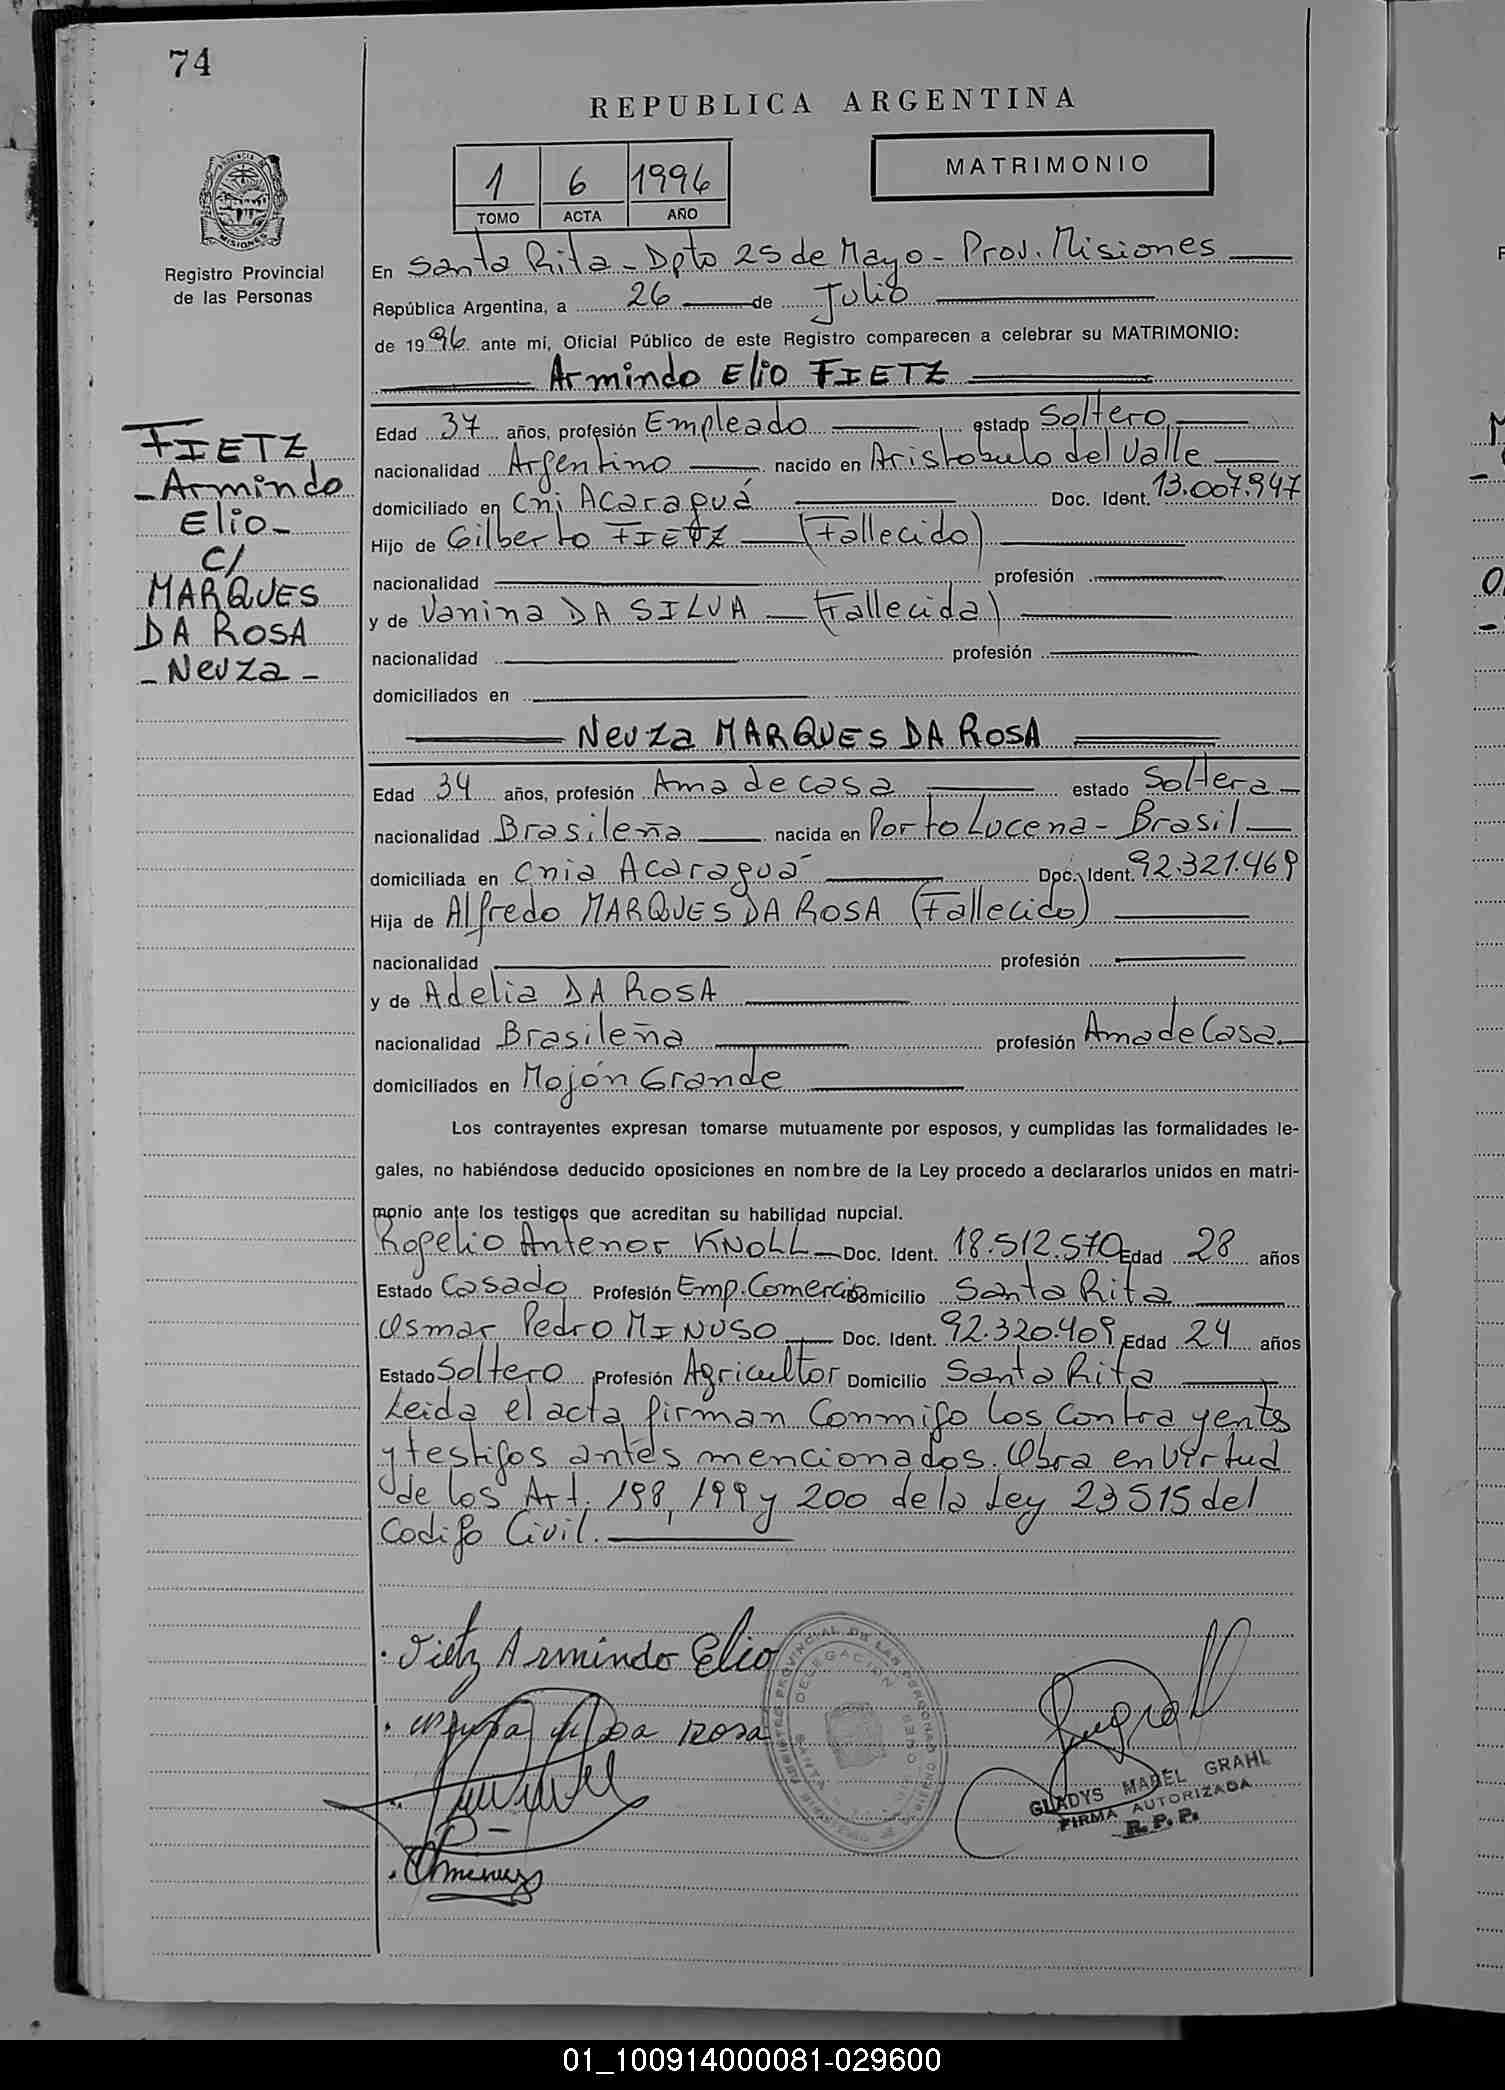 74
REPUBLICA ARGENTINA
MATRIMONIO
1 6 1996
TOMO ACTA AÑO
PROVINCIA DE
MISIONES
Registro Provincial
de las Personas
En Santa Rita - Dpto 25 de Mayo - Prov. Misiones
República Argentina, a 26 de Julio
de 1996 ante mí, Oficial Público de este Registro comparecen a celebrar su MATRIMONIO:
Armindo Elio FIETZ
FIETZ
- Armindo
Elio -
C/
MARQUES
DA ROSA
- Neuza -
Edad 37 años, profesión Empleado estado Soltero
nacionalidad Argentino nacido en Aristobulo del Valle
domiciliado en Cni Acaraguá Doc. Ident. 13.007.947
Hijo de Gilberto FIETZ (Fallecido)
nacionalidad profesión
y de Vanina DA SILVA (Fallecida)
nacionalidad profesión
domiciliados en
Neuza MARQUES DA ROSA
Edad 34 años, profesión Ama de casa estado Soltera
nacionalidad Brasileña nacida en Porto Lucena - Brasil
domiciliada en Cnia Acaraguá Doc. Ident. 92.321.469
Hija de Alfredo MARQUES DA ROSA (Fallecido)
nacionalidad profesión
y de Adelia DA ROSA
nacionalidad Brasileña profesión Ama de Casa
domiciliados en Mojón Grande
Los contrayentes expresan tomarse mutuamente por esposos, y cumplidas las formalidades le-
gales, no habiéndose deducido oposiciones en nombre de la Ley procedo a declararlos unidos en matri-
monio ante los testigos que acreditan su habilidad nupcial.
Rogelio Antenor KNOLL Doc. Ident. 18.512.570 Edad 28 años
Estado Casado Profesión Emp. Comercio Domicilio Santa Rita
Osmar Pedro MINUSO Doc. Ident. 92.320.409 Edad 24 años
Estado Soltero Profesión Agricultor Domicilio Santa Rita
Leida el acta firman Conmigo los Contrayentes
y testigos antes mencionados. Obra en virtud
de los Art. 198, 199 y 200 de la Ley 23515 del
Codigo Civil.
Fietz Armindo Elio
da Rosa
REGISTRO PROVINCIAL DE LAS PERSONAS
DELEGACION
SANTA
GLADYS MABEL GRAHL
FIRMA AUTORIZADA
R. P. P.
01_100914000081-029600